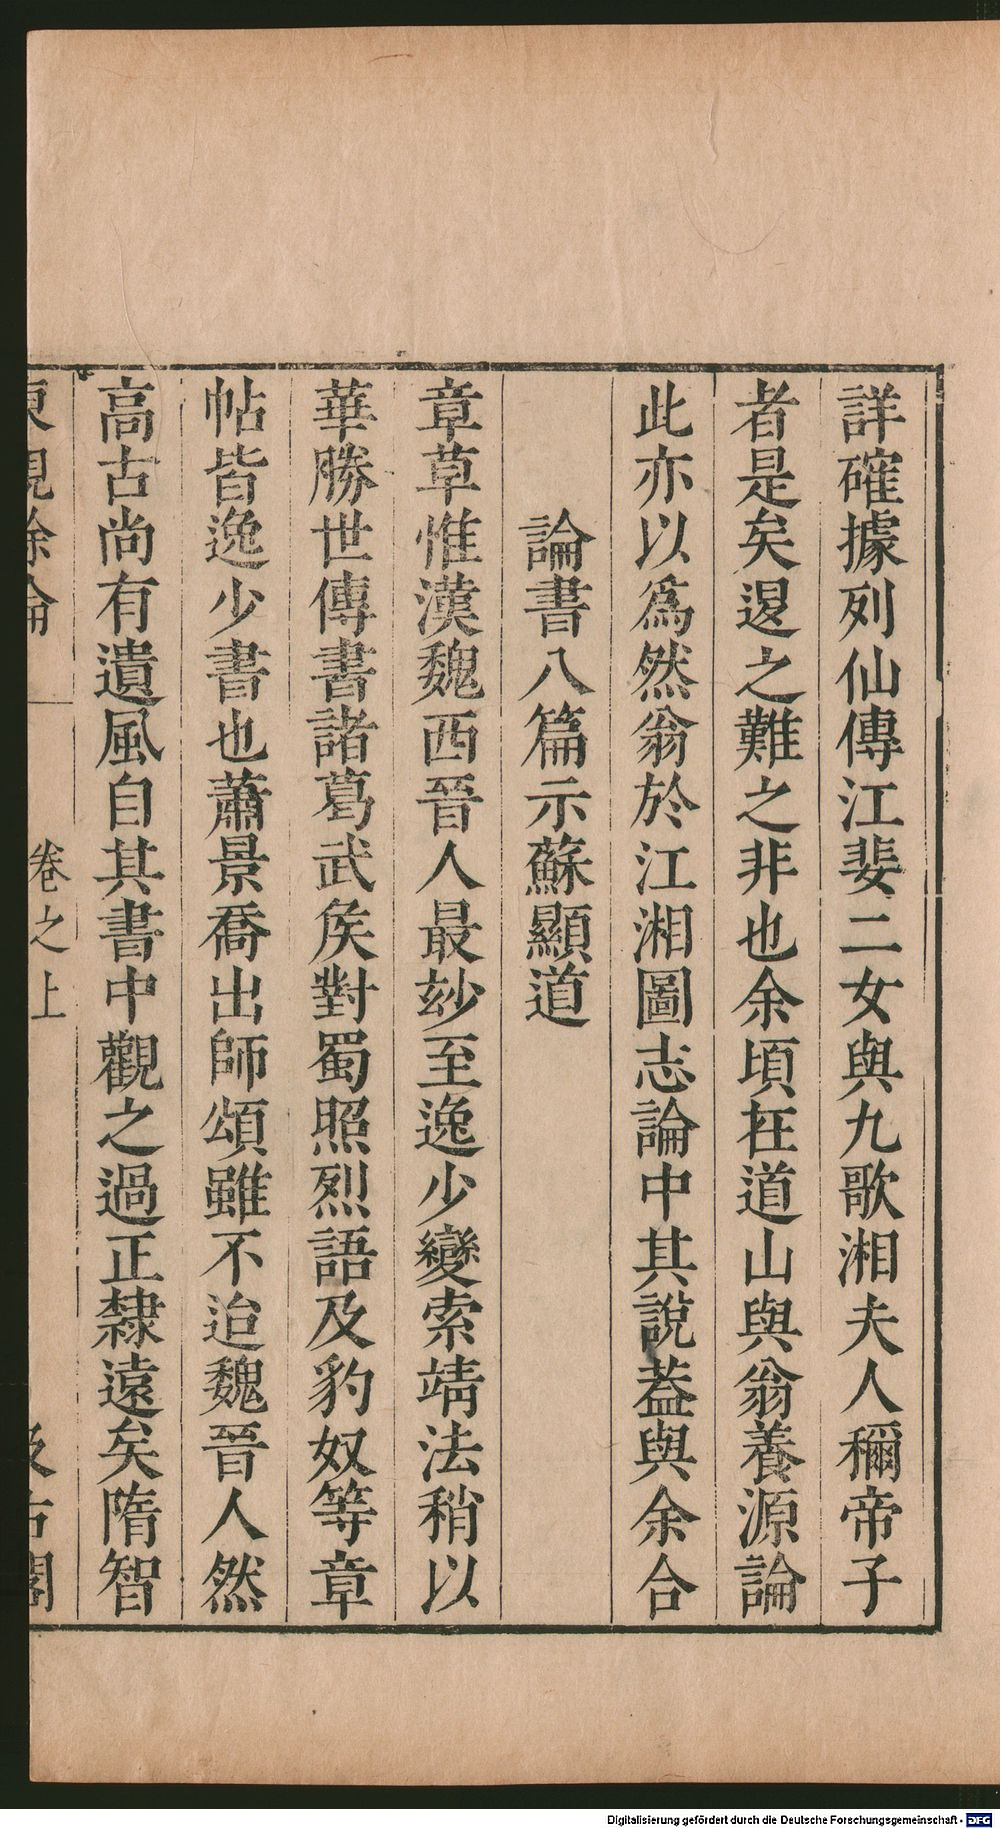 詳確據列仙傳江婓二女與九歌湘夫人稱帝子
者是矣退之難之非也余頃在道山與翁養源論
此亦以爲然翁於江湘圖志論中其說葢與余合
論書八篇示蘇顯道
章草惟漢魏西晉人最玅至逸少變索靖法稍以
華勝世傳書諸葛武矦對蜀照烈語及豹奴等章
帖皆逸少書也蕭景喬出師頌雖不迨魏晉人然
高古尚有遺風自其書中觀之過正隸遠矣隋智
東觀餘論
卷之上
汲古閣
Digitalisierung gefördert durch die Deutsche Forschungsgemeinschaft - DFG